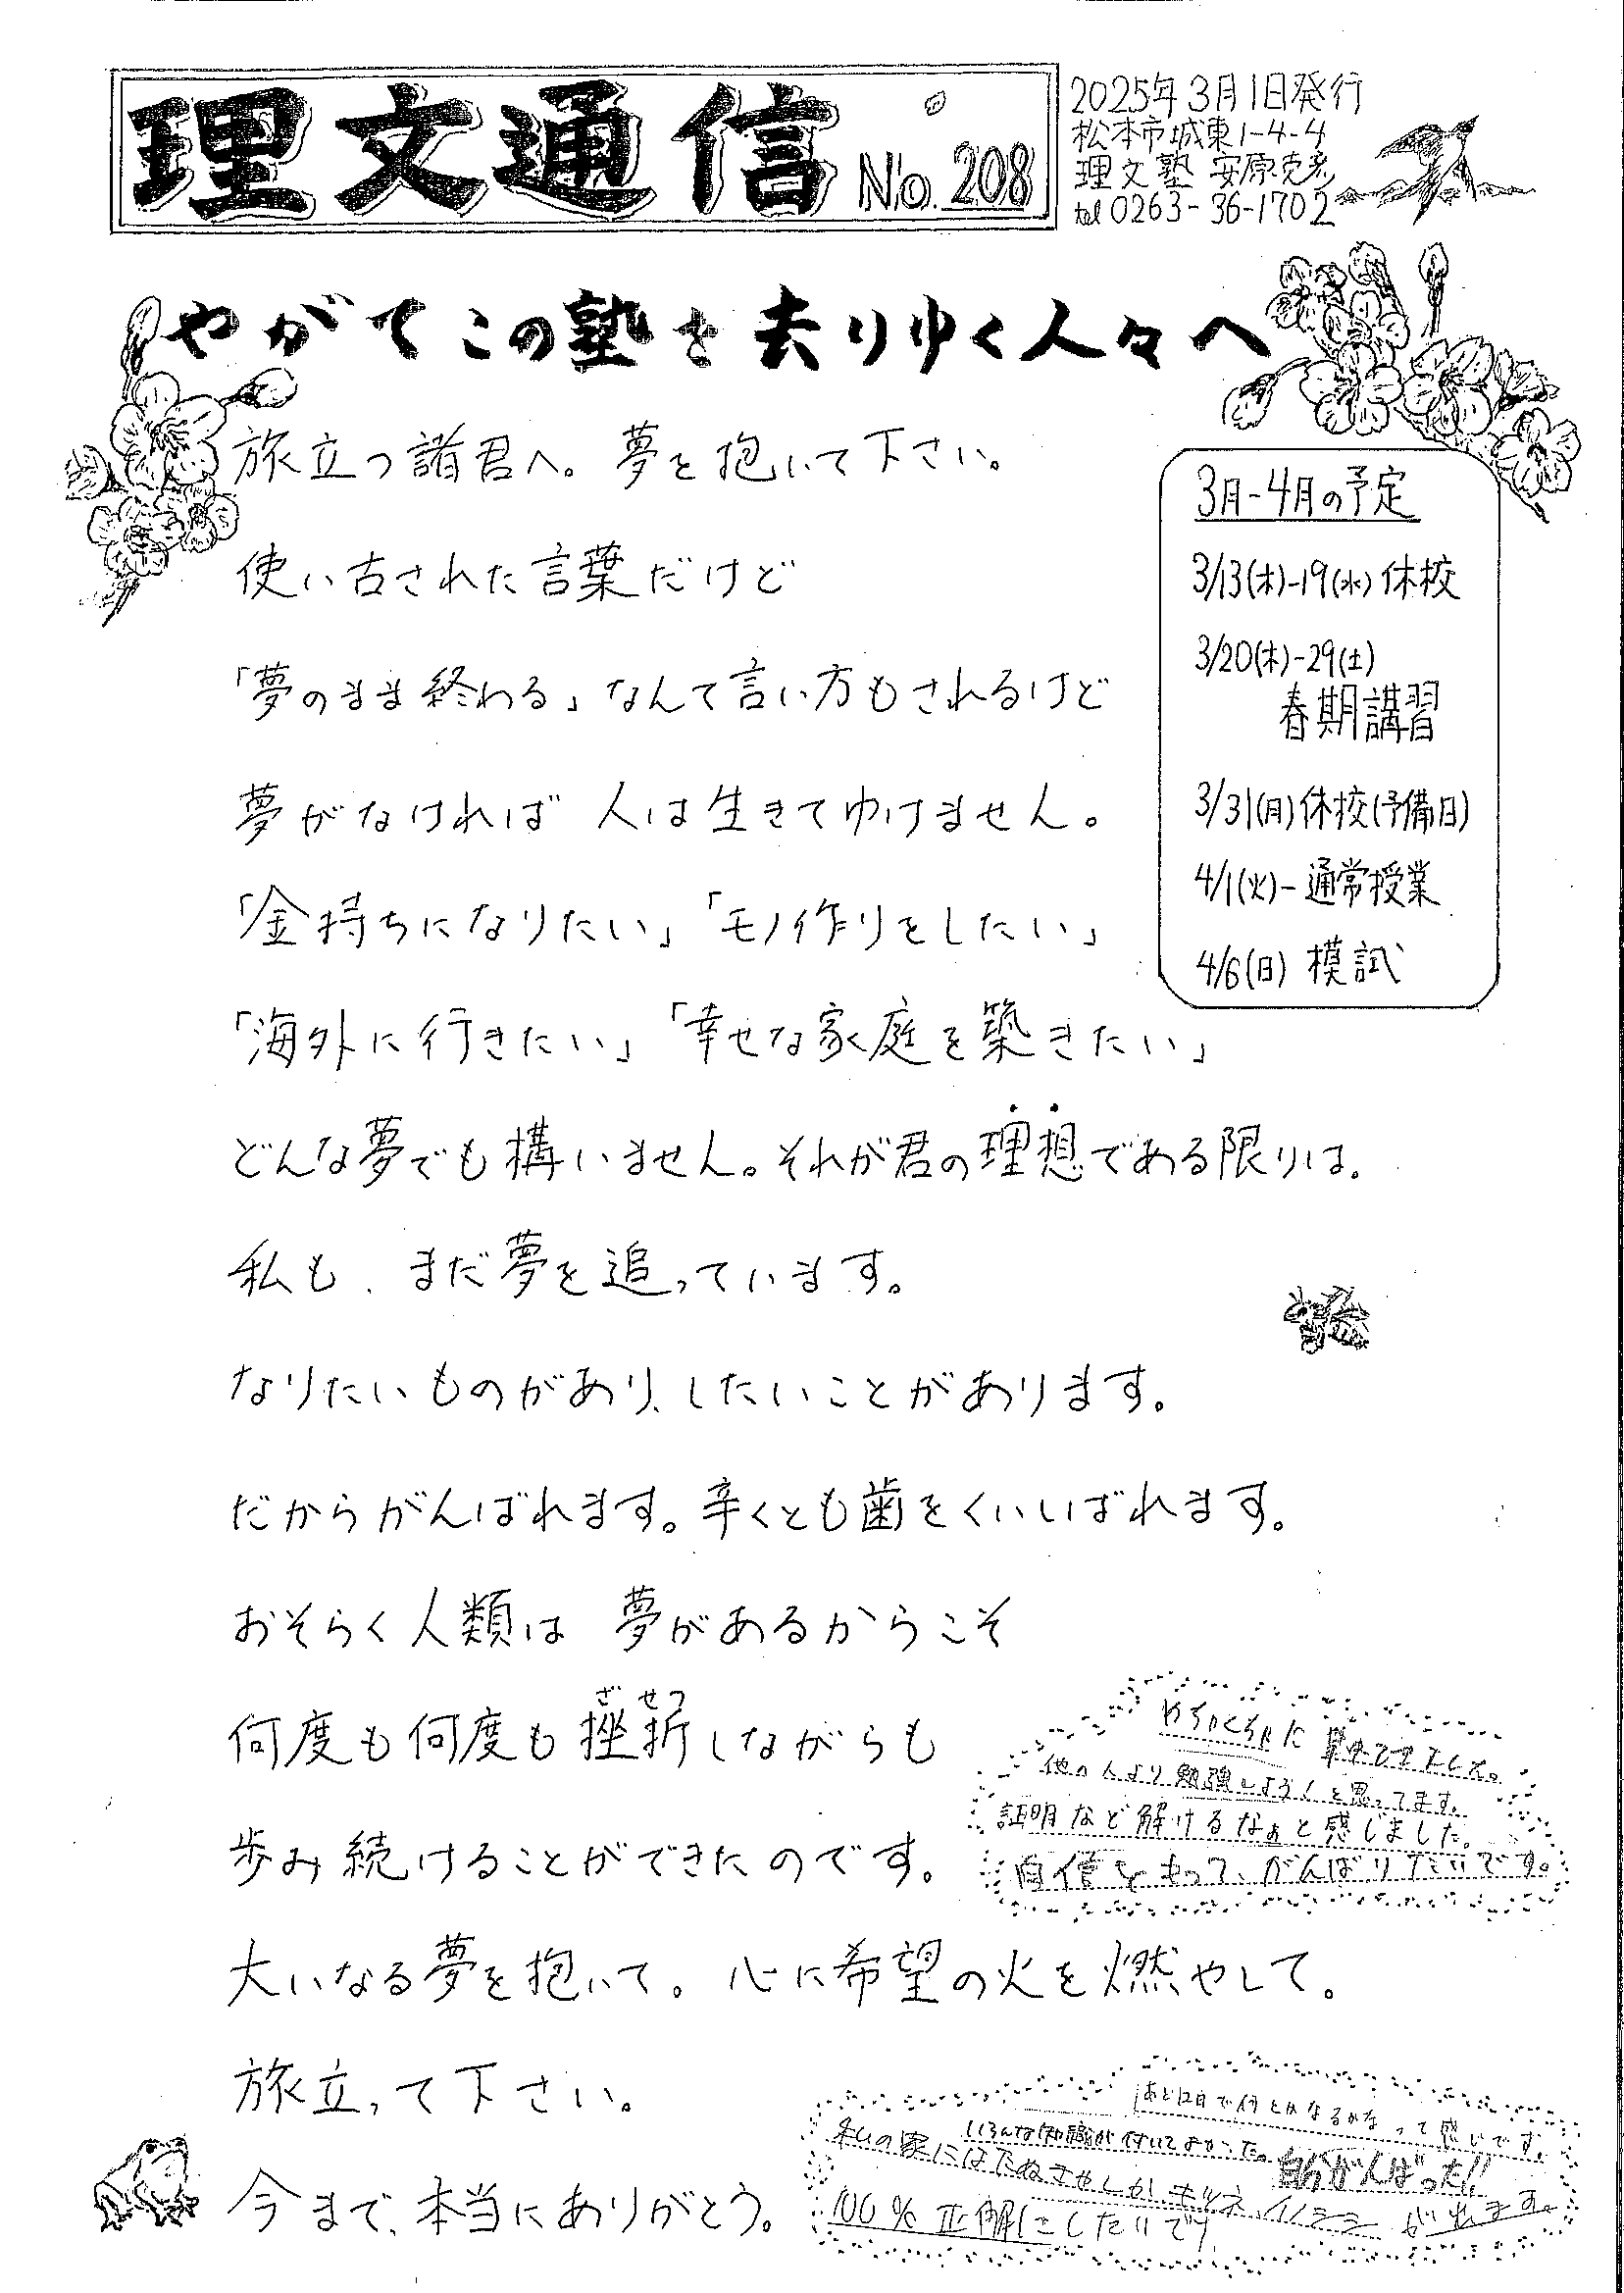 理文通信 No.208
2025年3月1日発行
松本市城東1-4-4
理文塾 安原克彦
tel 0263-36-1702
やがてこの塾を去りゆく人々へ
旅立つ諸君へ。夢を抱いて下さい。
使い古された言葉だけど
「夢のまま終わる」なんて言い方もされるけど
夢がなければ 人は生きてゆけません。
「金持ちになりたい」「モノ作りをしたい」
「海外に行きたい」「幸せな家庭を築きたい」
どんな夢でも構いません。それが君の理想である限りは。
私も、まだ夢を追っています。
なりたいものがあり、したいことがあります。
だからがんばれます。辛くとも歯をくいしばれます。
おそらく人類は 夢があるからこそ
ざ せつ
何度も何度も挫折しながらも
歩み続けることができたのです。
大いなる夢を抱いて。心に希望の火を燃やして。
旅立って下さい。
今まで、本当にありがとう。
3月-4月の予定
3/13(木)-19(水) 休校
3/20(木)-29(土)
春期講習
3/31(月)休校(予備日)
4/1(火)- 通常授業
4/6(日) 模試
めちゃくちゃに
他の人より勉強しよう!と思ってます。
証明など解けるなぁと感じました。
自信をもって、がんばりたいです。
あと12日で何とかなるかなって感じです。
いろんな知識が付いてよかった。自分がんばった!!
私の家には
100%正解にしたいです